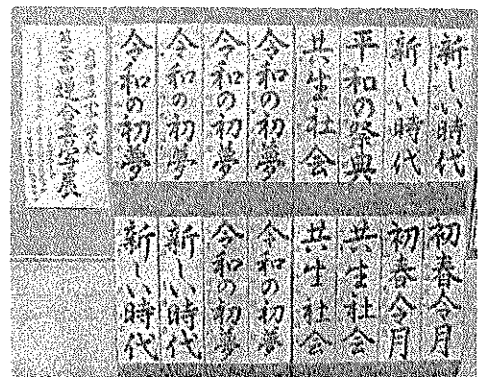 新しい時代
新しい時代
平和の祭典
共生社会
令和の初夢
令和の初夢
令和の初夢
令和の初夢
初春令月
初春令月
共生社会
共生社会
令和の初夢
令和の初夢
新しい時代
新しい時代